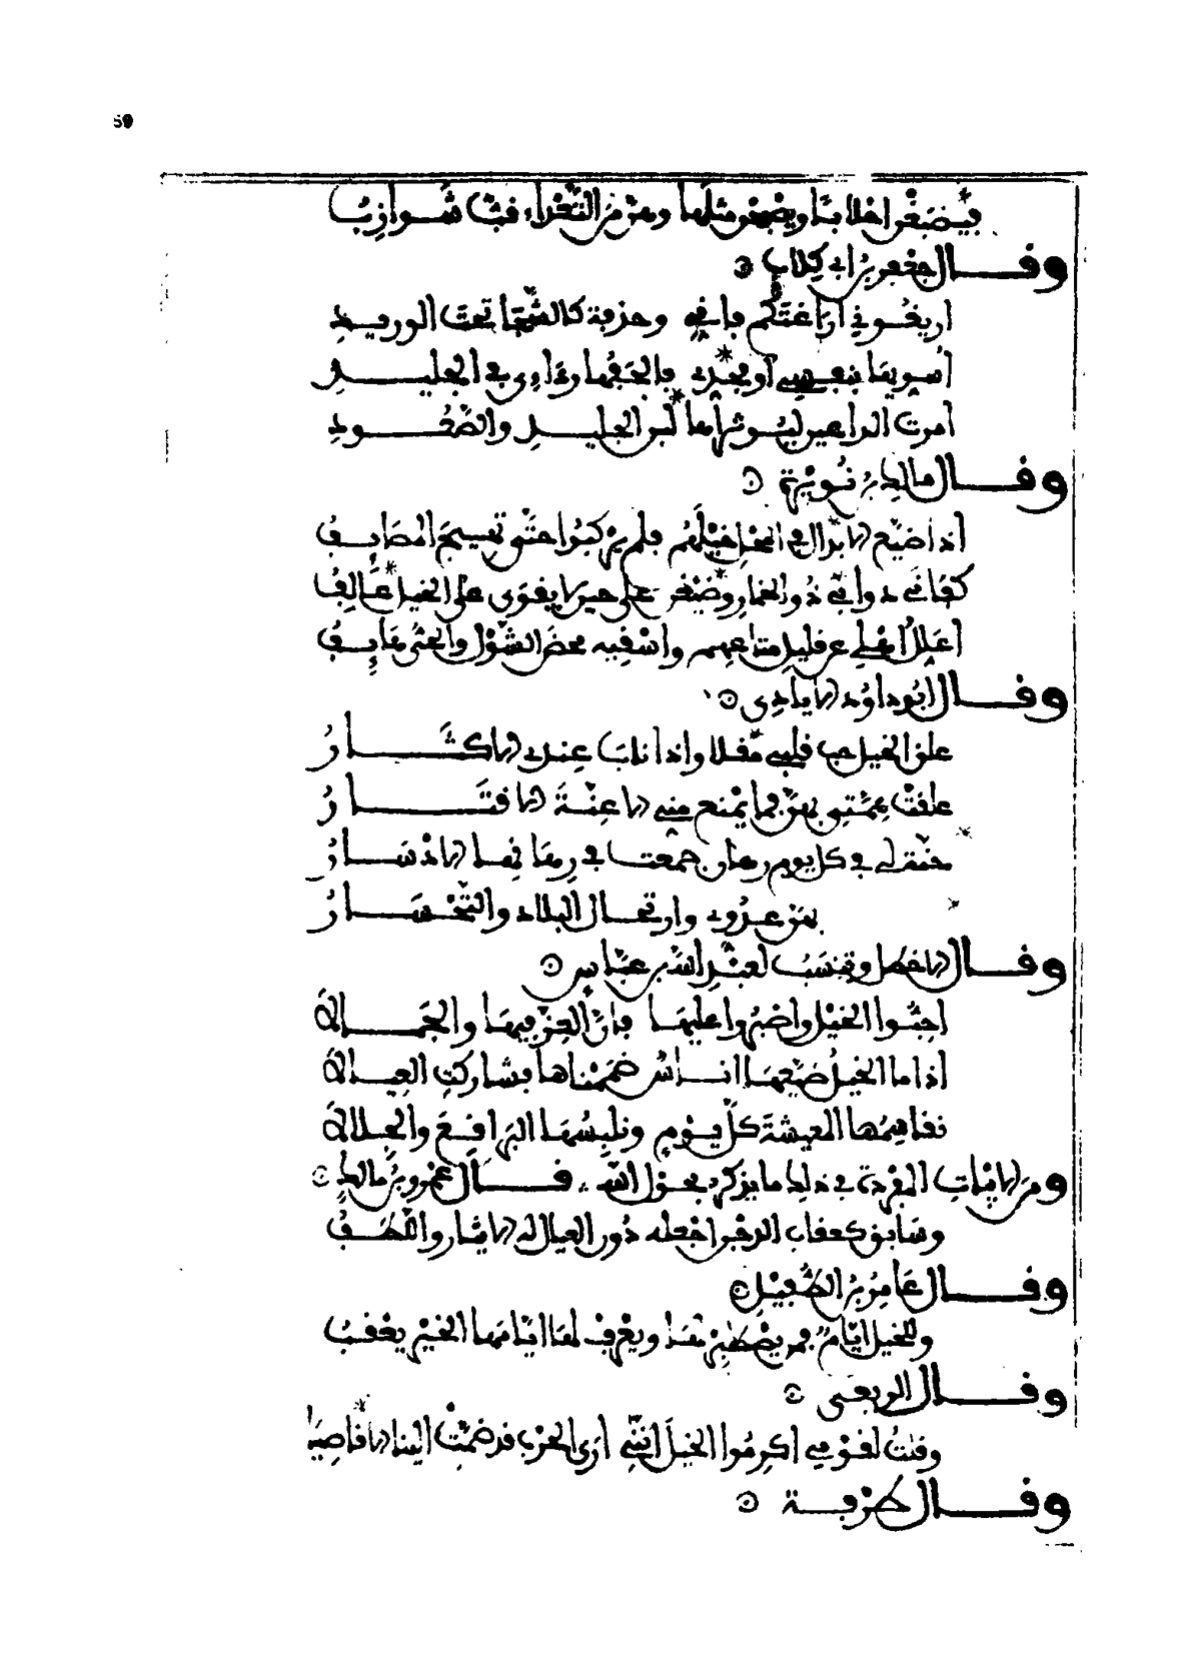 59
فيصبغن احلابا ويصبحن مثلها وهن من التغداء قب شوازب
وقال جعفر بن ابي كلاب
اريغوني اراغتكم فاني وحذفة كالشجا تحت الوريد
اسويها بنفسي او بجزء فالحفها ردائي في الجليد
امرت الراعيين ليوثراها لبن الخلية والصعود
وقال مالك بن نويرة
اذا ضيع الانذال في المحل خيلهم فلم يركبوا حتى تهيج المصايف
كفاني دوائي ذو الخمار وضيعتي على حين لا يقوى على الخيل عالف
اعلل اهلي عن قليل متاعهم واسقيه محض الشول والحي هايف
وقال ابو داود الايادي
علق الخيل حب قلبي وليدا واذا ناب عندي الاكثار
علقت همتي بهن فما يمنع مني الاعنة الاقتار
جنة لي في كل يوم رهان جمعت في رهانها الاذسار
بهن عزوي وارتحال البلاد والتخسار
وقال الاخطل وتنسب لعبد الله بن عباس
احبوا الخيل واصبروا عليها فان العز فيها والجمالا
اذا ما الخيل ضيعها اناس ضممناها فشاركت العيالا
نقاسمها المعيشة كل يوم ونلبسها البراقع والجلالا
ومن الابيات المفردة في ذلك ما يذكر بحول الله فـقال عمرو بن مالك
وسابق كعقاب الدجن اجعله دون العيال له الايثار واللطف
وقال عامر بن الطفيل
وللخيل ايام فمن يصطبر لها ويعرف لها ايامها الخير يعقب
وقال الربعي
وقلت لقومي اكرموا الخيل انني ارى الحرب قد ضمت الينا الاقاصيا
وقال طرفة